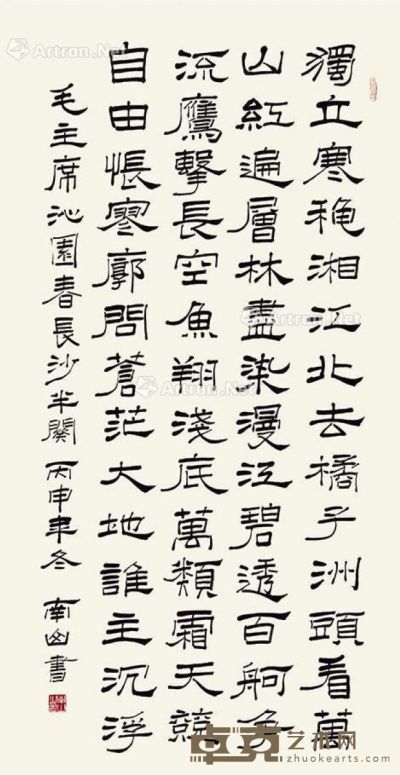 獨立寒穐湘江北去橘子洲頭看萬
山紅遍層林盡染漫江碧透百舸爭
流鷹擊長空魚翔淺底萬類霜天競
自由悵寥廓問蒼茫大地誰主沉浮
毛主席沁園春長沙半闋 丙申年冬 南山書
Artron.Net
Artron.Net
Artron.Net
Artron.Net
卓克艺术网
zhuokearts.com